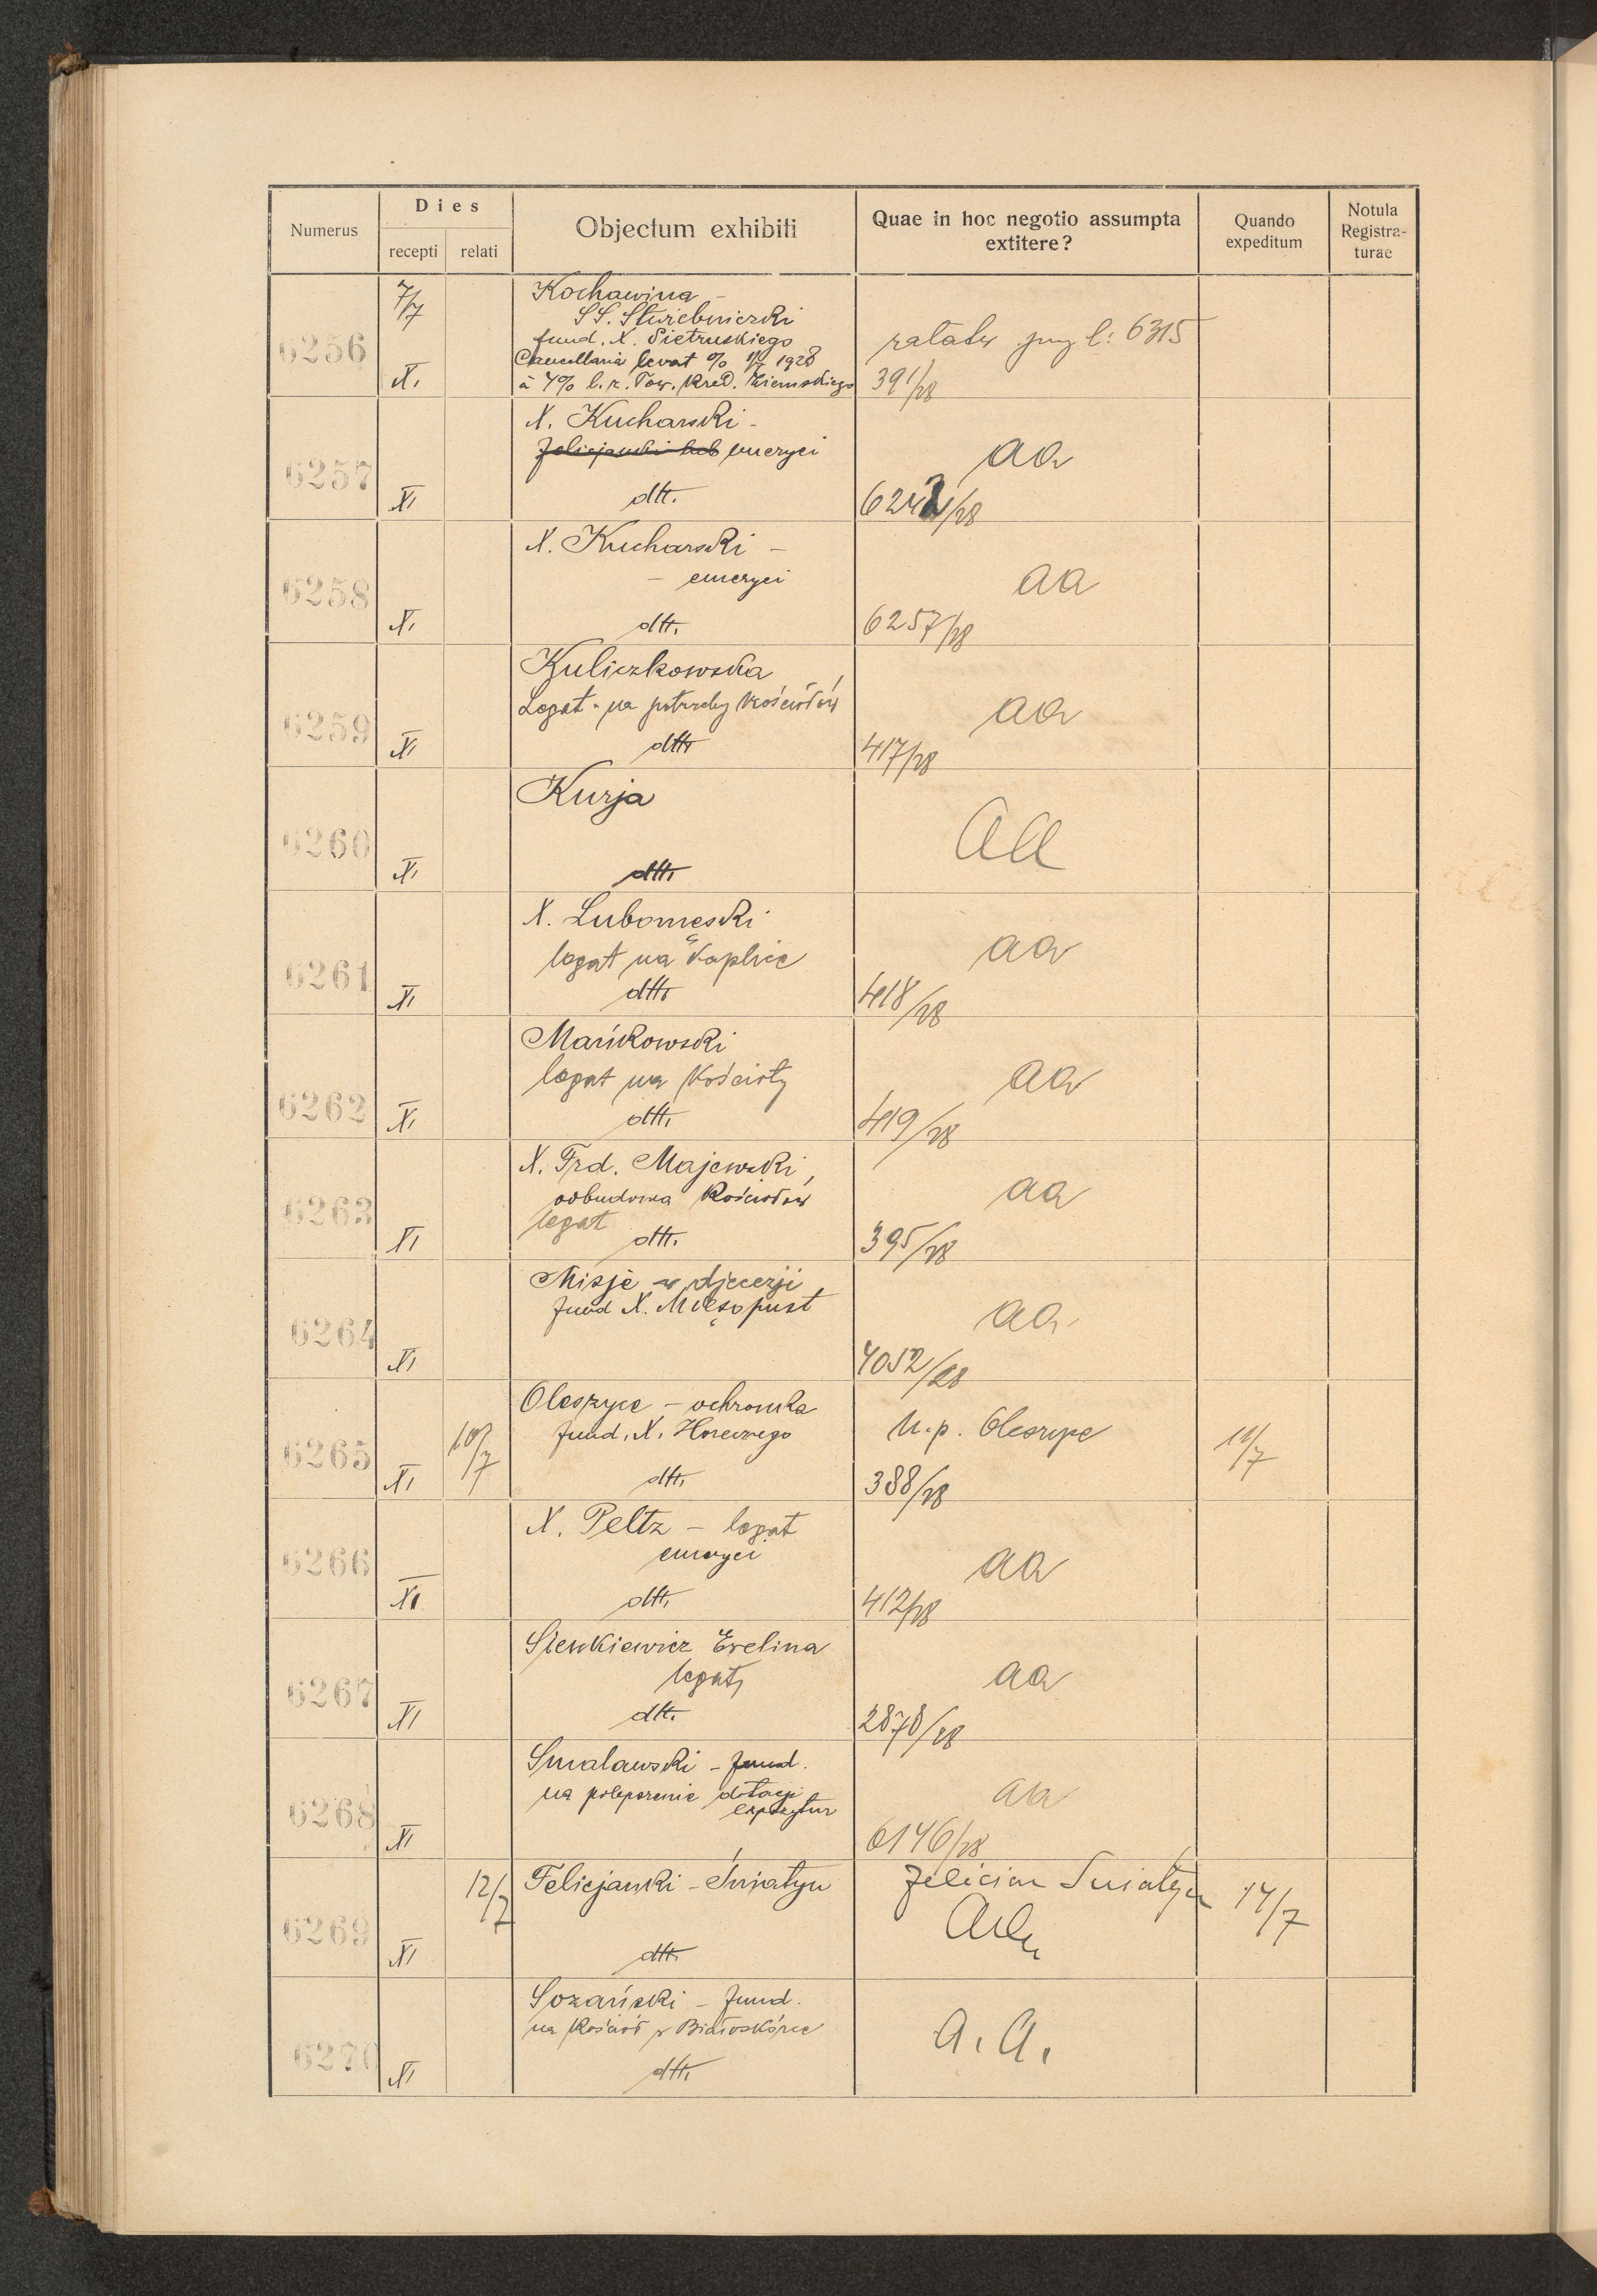 Numerus
Dies
recepti
relati
Objectum exhibiti
Quae in hoc negotio assumpta
extitere?
Quando
expeditum
Notula
Registra-
turae
6256
7/7
XI
Kochawina -
SS. Służebniczki
fund. X. Pietruskiego
Cancellaria levat % 1/7 1928
à 4% l. z. Tow. Kred. Ziemskiego
l: 6315
391/28
6257
XI
X. Kucharski -
Felicjanki emeryci
dtt.
aa
6242/28
6258
XI
X. Kucharski -
- emeryci
dtt.
aa
6257/28
6259
XI
Kuliczkowska
Legat - na potrzeby kościołów
dtt.
aa
417/28
6260
XI
Kurja
dtt.
aa
6261
XI
X. Lubomęski
legat na kaplice
dtt.
aa
418/28
6262
XI
Mańkowski
legat na kościoły
dtt.
aa
419/28
6263
XI
X. Frd. Majewski,
odbudowa kościołów
legat
dtt.
aa
395/28
6264
XI
Misje w djecezji
fund X. Mięsopust
aa
4052/28
6265
XI
10/7
Oleszyce - ochronka
fund. X.
dtt.
U.p. Oleszyce
388/28
11/7
6266
XI
X. Peltz - legat
emeryci
dtt.
aa
412/28
6267
XI
Sienkiewicz Ewelina
legat,
dtt.
aa
2878/28
6268
XI
Smalawski - fund.
na polepszenie dotacji
expozytur
aa
6146/28
6269
XI
12/7
Felicjanki - Śniatyn
dtt.
Felician Śniatyn
14/7
6270
XI
Sozański - fund.
na kościół w Białoskórce
dtt.
a. a.